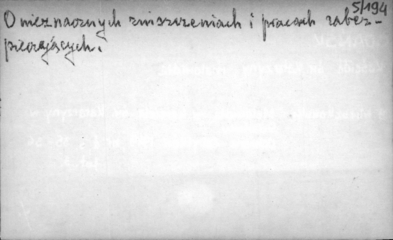 5/194
O nieznacznych zniszczeniach i pracach zabez-
pieczających.